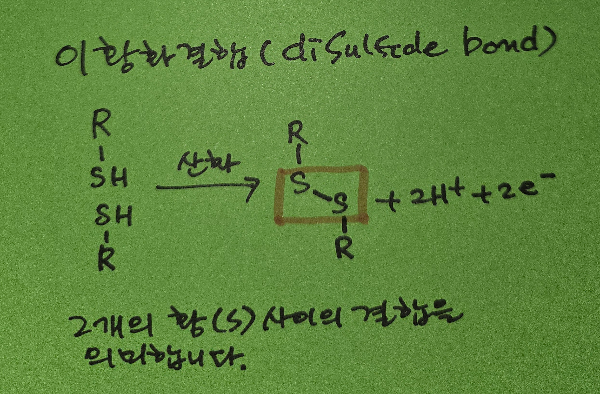 이황화결합(disulfide bond)
R
SH
SH
R
산화
R
S
S
R
+ 2H⁺ + 2e⁻
2개의 황(S) 사이의 결합을
의미합니다.